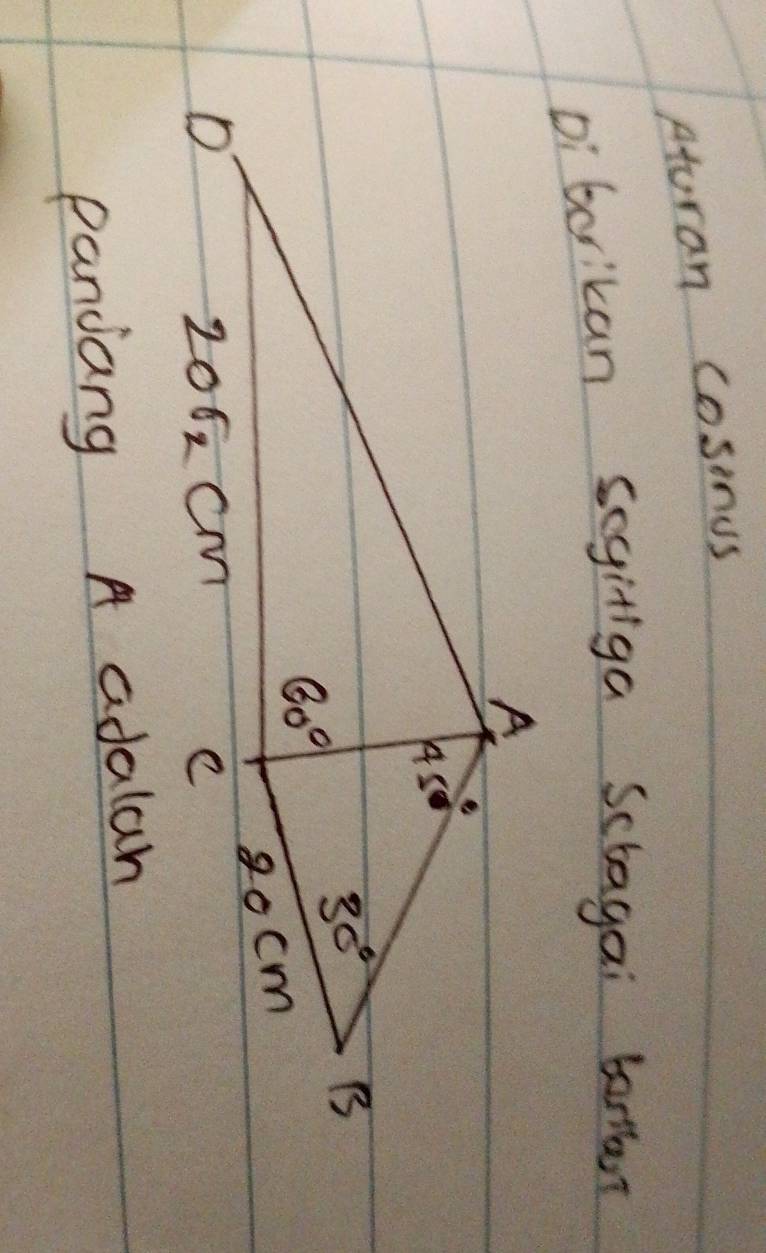 Aturan Cosinus
Diberikan Segitiga Sebagai berikut
A
45°
60°
30°
D
20√2 cm
C
20 cm
B
Panjang A adalah